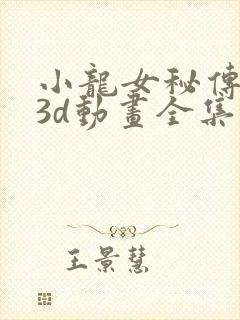 小龍女秘傳
3d動畫全集
王景慧